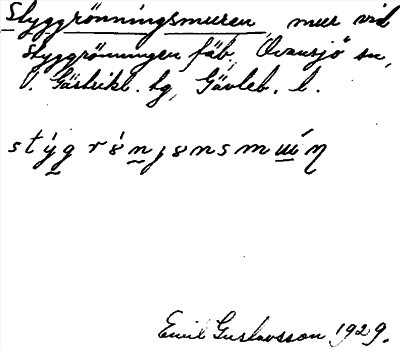 Styggrönningsmuren, mur vid
Styggrönningen fäb, Ovansjö sn,
V. Gästrikl. tg, Gävleb. l.
Emil Gustavsson 1929.